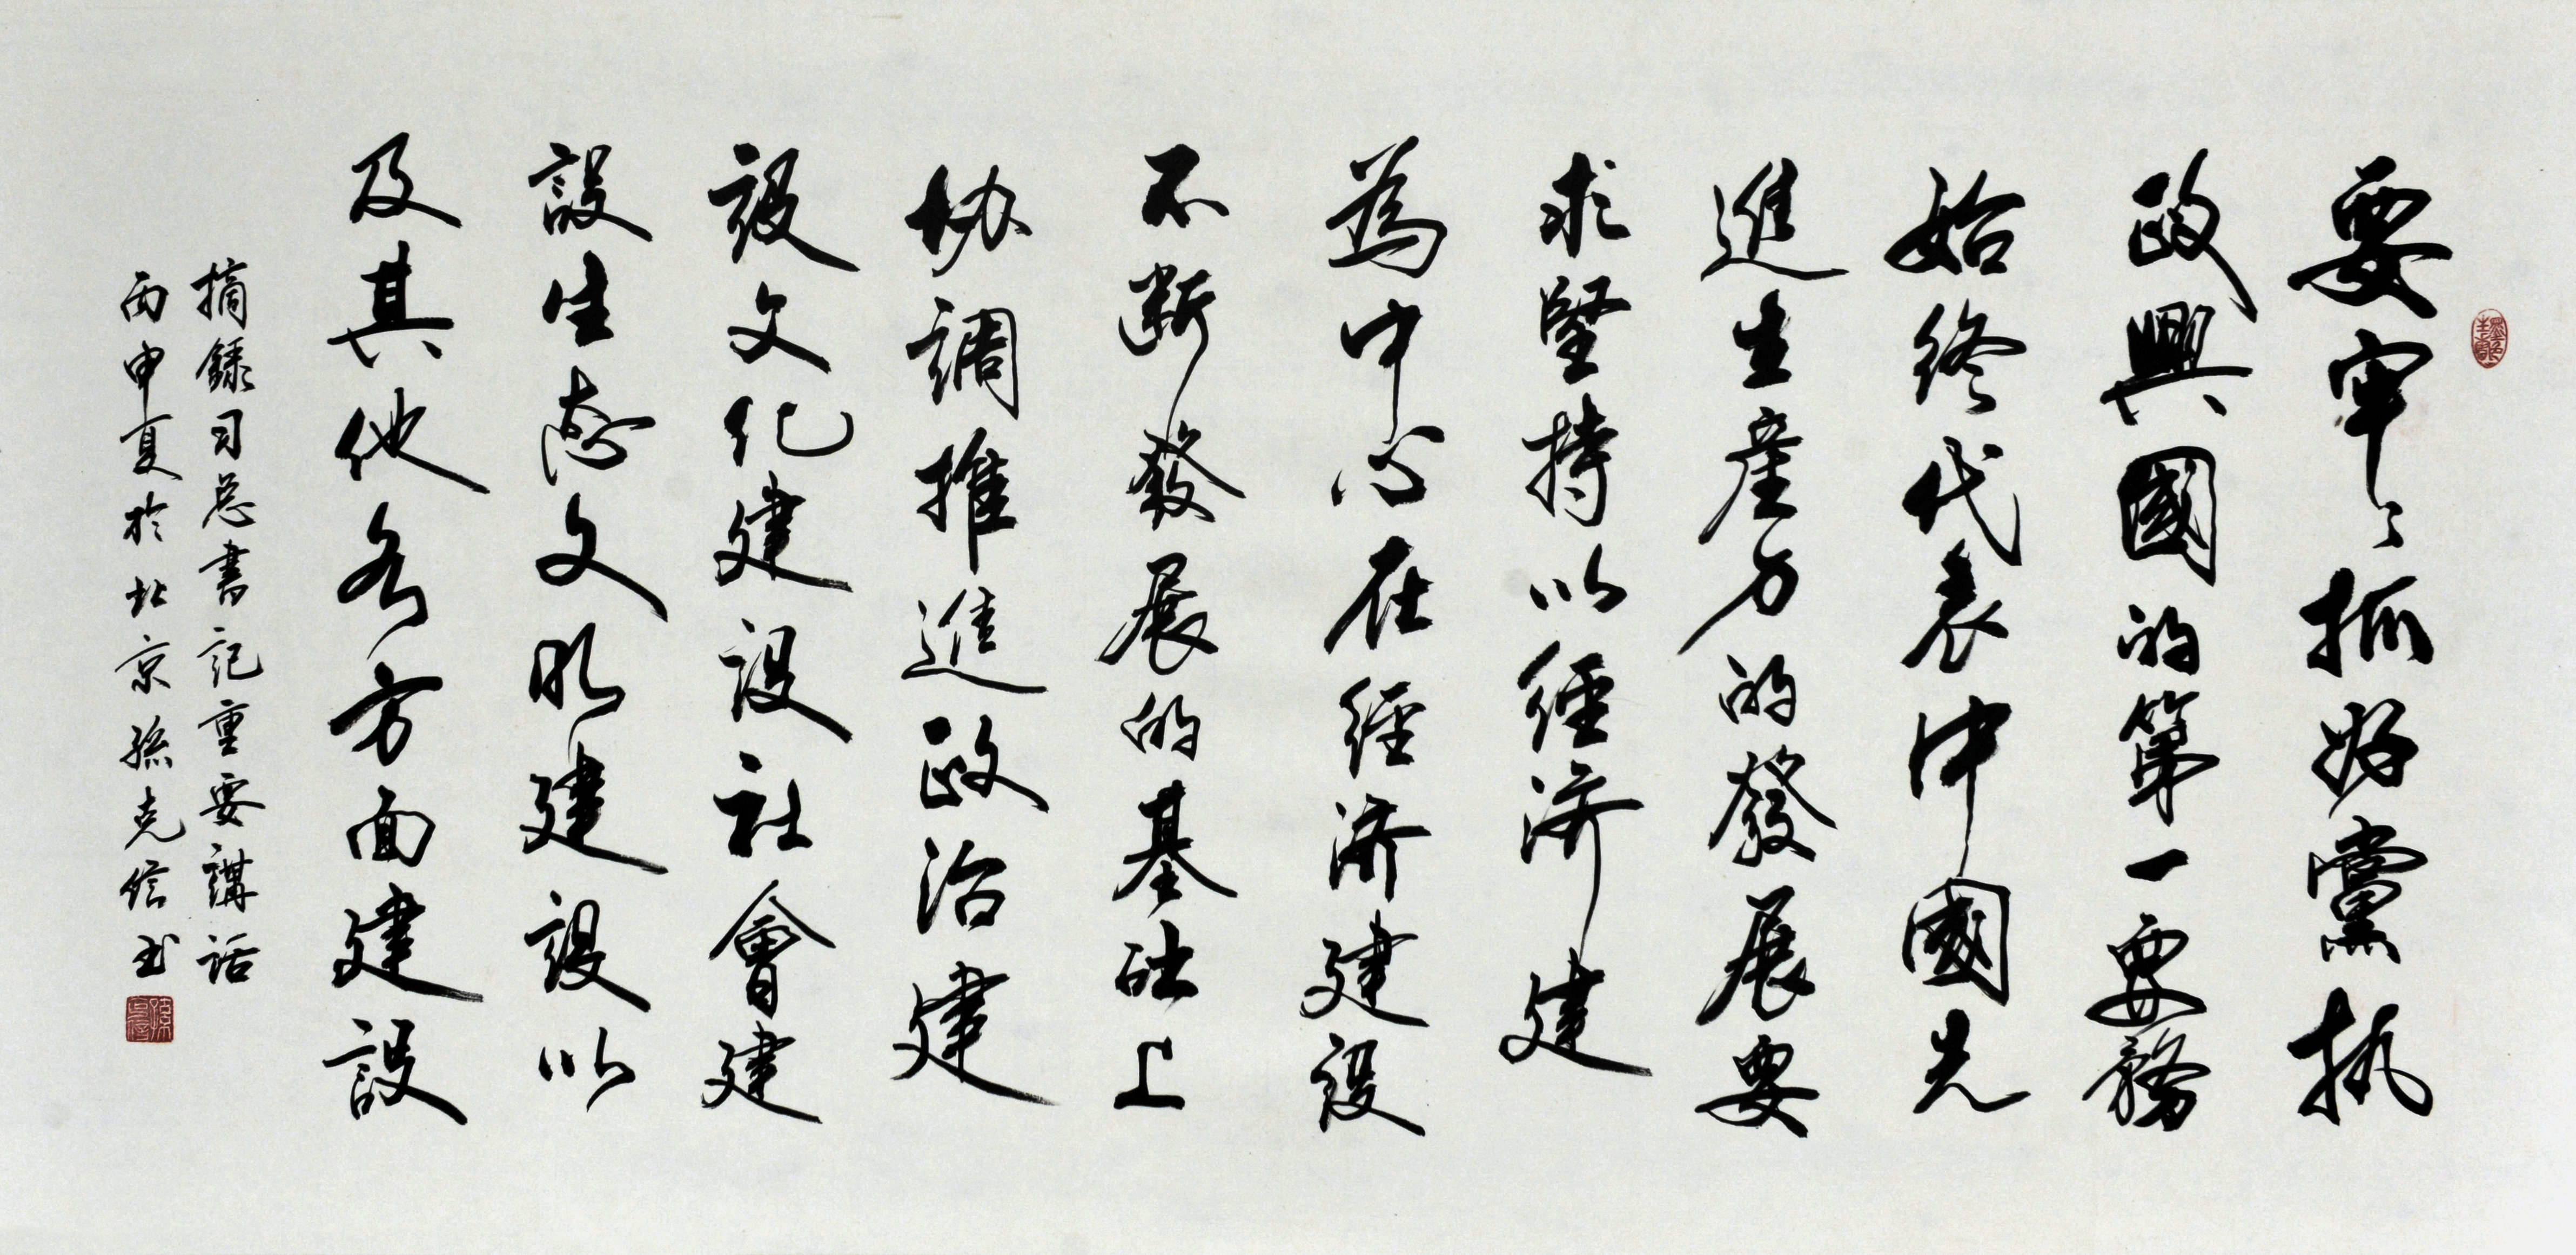 要牢々抓好黨執
政興國的第一要務
始終代表中國先
進生產力的發展要
求堅持以經濟建
為中心在經濟建設
不斷發展的基础上
協調推進政治建
設文化建設社會建
設生态文明建設以
及其他各方面建設
摘錄习总書記重要講話
丙申夏於北京孫克信书